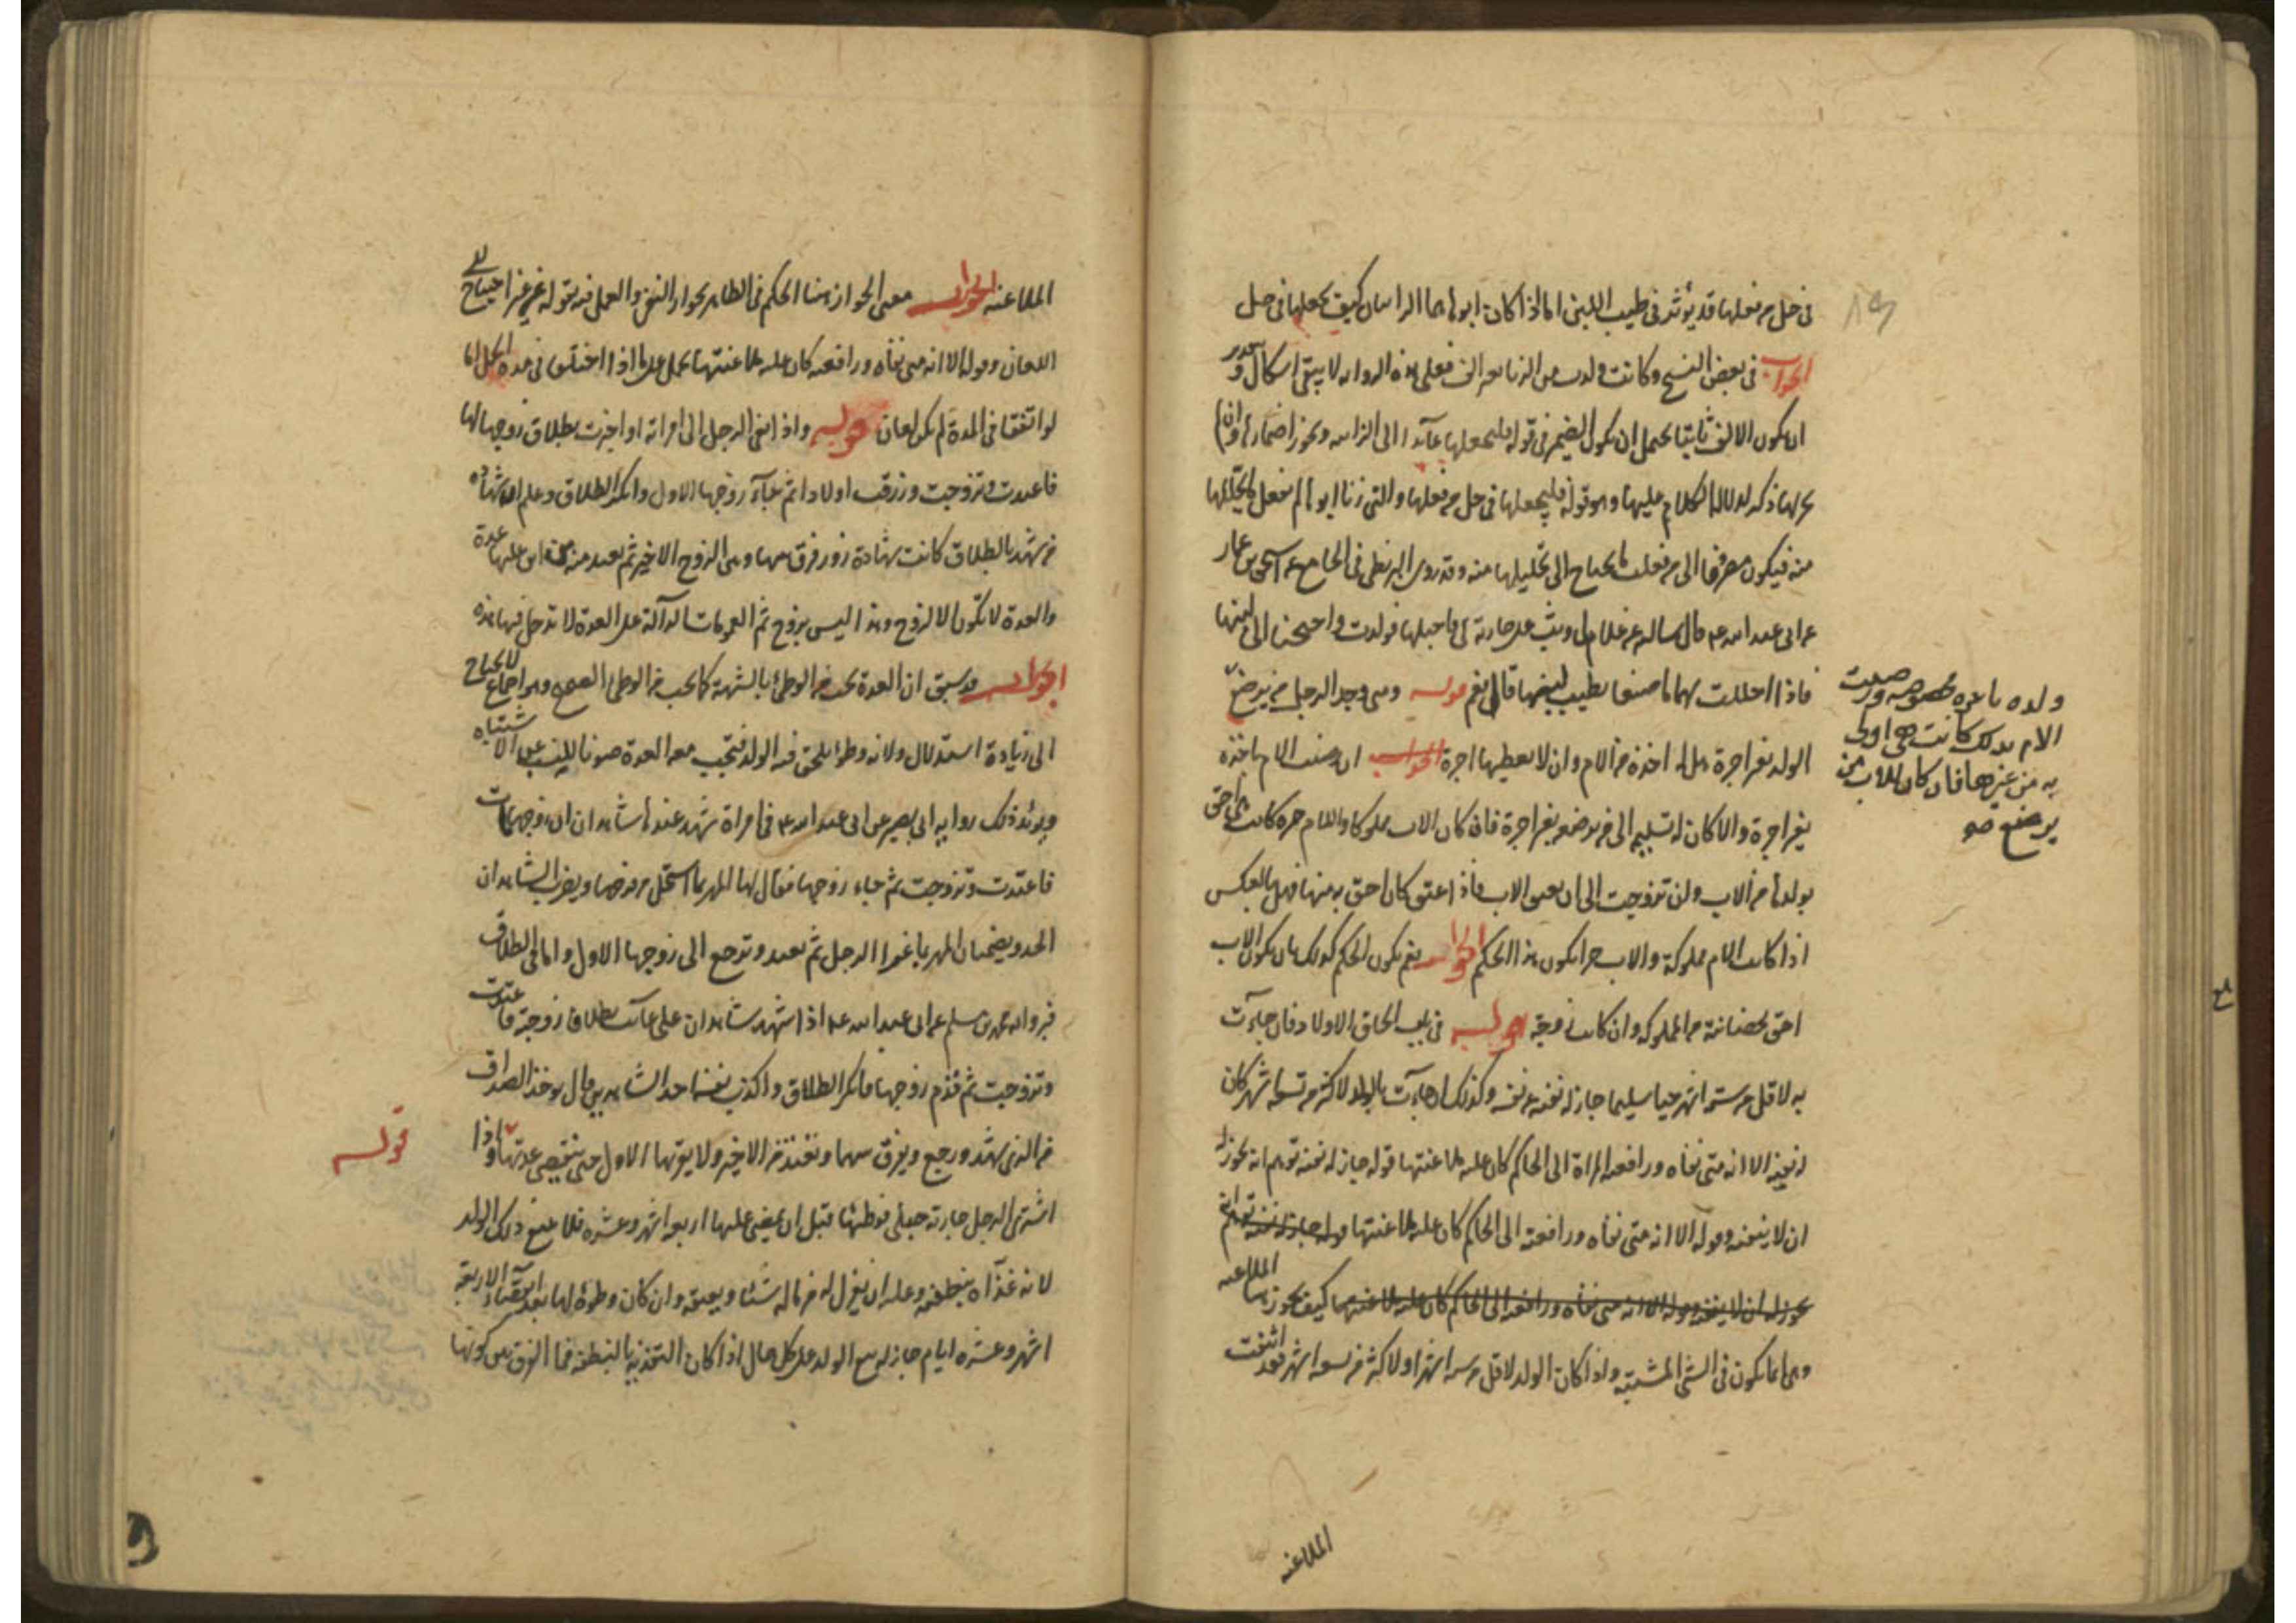 في حل من فعلها قد يؤثر في طيب اللبن اما اذا كان ابواها الزانيان كيف يجعلها في حل
الجواب في بعض النسخ وكانت ولدت من الزنا بغير الف فعلى هذه الرواية لا يبقى اشكال وبتقدير
ان يكون الالف ثابتا يحتمل ان يكون الضمير في قوله فليجعلها عائدا الى الزانية ويجوز اضمارها وان لم
يجر لها ذكر لدلالة الكلام عليها وهو قوله فليجعلها في حل من فعلها والتي زنا ابواها لم تفعل ما يحللها
منه فيكون مصروفا الى من فعلت ما يحتاج الى تحليلها منه وقد روى البزنطي في الجامع عن اسحق بن عمار
عن ابي عبد الله ع قال سالته عن غلام لي وثب على جارية لي فاحبلها فولدت واحتجنا الى لبنها
فاذا احللت لهما ما صنعا يطيب لبنها قال نعم قوله ومتى وجد الرجل من يرضع
الولد بغير اجرة هل له اخذه من الام وان لا يعطيها اجرة الجواب ان رضيت الام باخذه
بغير اجرة والا كان له تسليمه الى من يرضعه بغير اجرة فان كان الاب مملوكا والام حرة كانت هي احق
بولدها من الاب وان تزوجت الى ان يعتق الاب فاذا اعتق كان احق به منها فهل بالعكس
اذا كانت الام مملوكة والاب حرا يكون هذا الحكم الجواب نعم يكون الحكم كذلك بان يكون الاب
احق بحضانته من المملوكة وان كانت زوجته قوله في باب الحاق الاولاد فان جاءت
به لاقل من ستة اشهر حيا سليما جاز له نفيه عن نفسه وكذلك ان جاءت بالولد لاكثر من تسعة اشهر كان
له نفيه الا انه متى نفاه ورافعته المراة الى الحاكم كان عليه ملاعنتها قوله جاز له نفيه توهم انه يجوز له
ان لا ينفيه وقوله الا انه متى نفاه ورافعته الى الحاكم كان عليه ملاعنتها قوله جاز له نفيه توهم انه
يجوز له ان لا ينفيه وقوله الا انه متى نفاه ورافعته الى الحاكم كان عليه ملاعنتها كيف يجوز هنا الملاعنة
وهي انما يكون في الشي المشتبه واذا كان الولد لاقل من ستة اشهر او لاكثر من تسعة اشهر فقد انتفت
ولده باجرة مخصوصة ورضيت
الام بذلك كانت هي اولى
به من غيرها فان كان للاب من
يرضع صه
الملاعنة
الملاعنة الجواب معنى الجواز هنا الحكم في الظاهر بجواز النفي والعمل فيه بقوله من غير احتياج الى
اللعان وقوله الا انه متى نفاه ورافعته كان عليه ملاعنتها يحمل على ما اذا اختلفا في مدة الحمل اما
لو اتفقا في المدة لم يكن لعان قوله واذا نعي الرجل الى امراته او اخبرت بطلاق زوجها لها
فاعتدت وتزوجت ورزقت اولادا ثم جاء زوجها الاول وانكر الطلاق وعلم ان شهادة
من شهد بالطلاق كانت شهادة زور فرق بينها وبين الزوج الاخير ثم تعتد منه من اين عليها عدة
والعدة لا تكون الا لزوج وهذا ليس بزوج ثم العمومات الدالة على العدة لا تدخل فيها هذه
الجواب قد سبق ان العدة تجب من الوطئ بالشبهة كما تجب من الوطئ الصحيح وهو اجماع لا يحتاج
الى زيادة استدلال ولانه وطؤ يلحق فيه الولد فتجب معه العدة صونا للنسب عن الاشتباه
ويؤيد ذلك رواية ابي بصير عن ابي عبد الله ع في امراة شهد عندها شاهدان ان زوجها مات
فاعتدت وتزوجت ثم جاء زوجها فقال لها المهر بما استحل من فرجها ويضرب الشاهدان
الحد ويضمنان المهر بما غرا الرجل ثم تعتد وترجع الى زوجها الاول واما في الطلاق
فبرواية محمد بن مسلم عن ابي عبد الله ع اذا شهد شاهدان على غائب بطلاق زوجته فاعتدت
وتزوجت ثم قدم زوجها فانكر الطلاق واكذب نفسه احد الشاهدين قال يوخذ الصداق
من الذي شهد ورجع ويفرق بينهما وتعتد من الاخير ولا يقربها الاول حتى تنقضي عدتها واذا
اشترى الرجل جارية حبلى فوطئها قبل ان يمضي عليها اربعة اشهر وعشرة فلا يبيع ذلك الولد
لانه غذاه بنطفته وعليه ان يعزل له من ماله شيئا ويعتقه وان كان وطؤه لها بعد انقضاء الاربعة
اشهر وعشرة ايام جاز له بيع الولد على كل حال اذا كان التغذية بالنطفة فما الفرق بين كونها
قوله